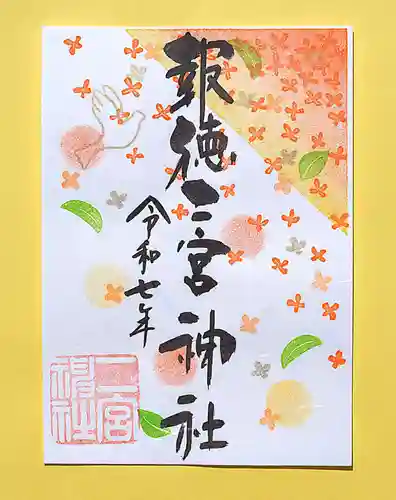 報徳二宮神社
令和七年
二宮神社